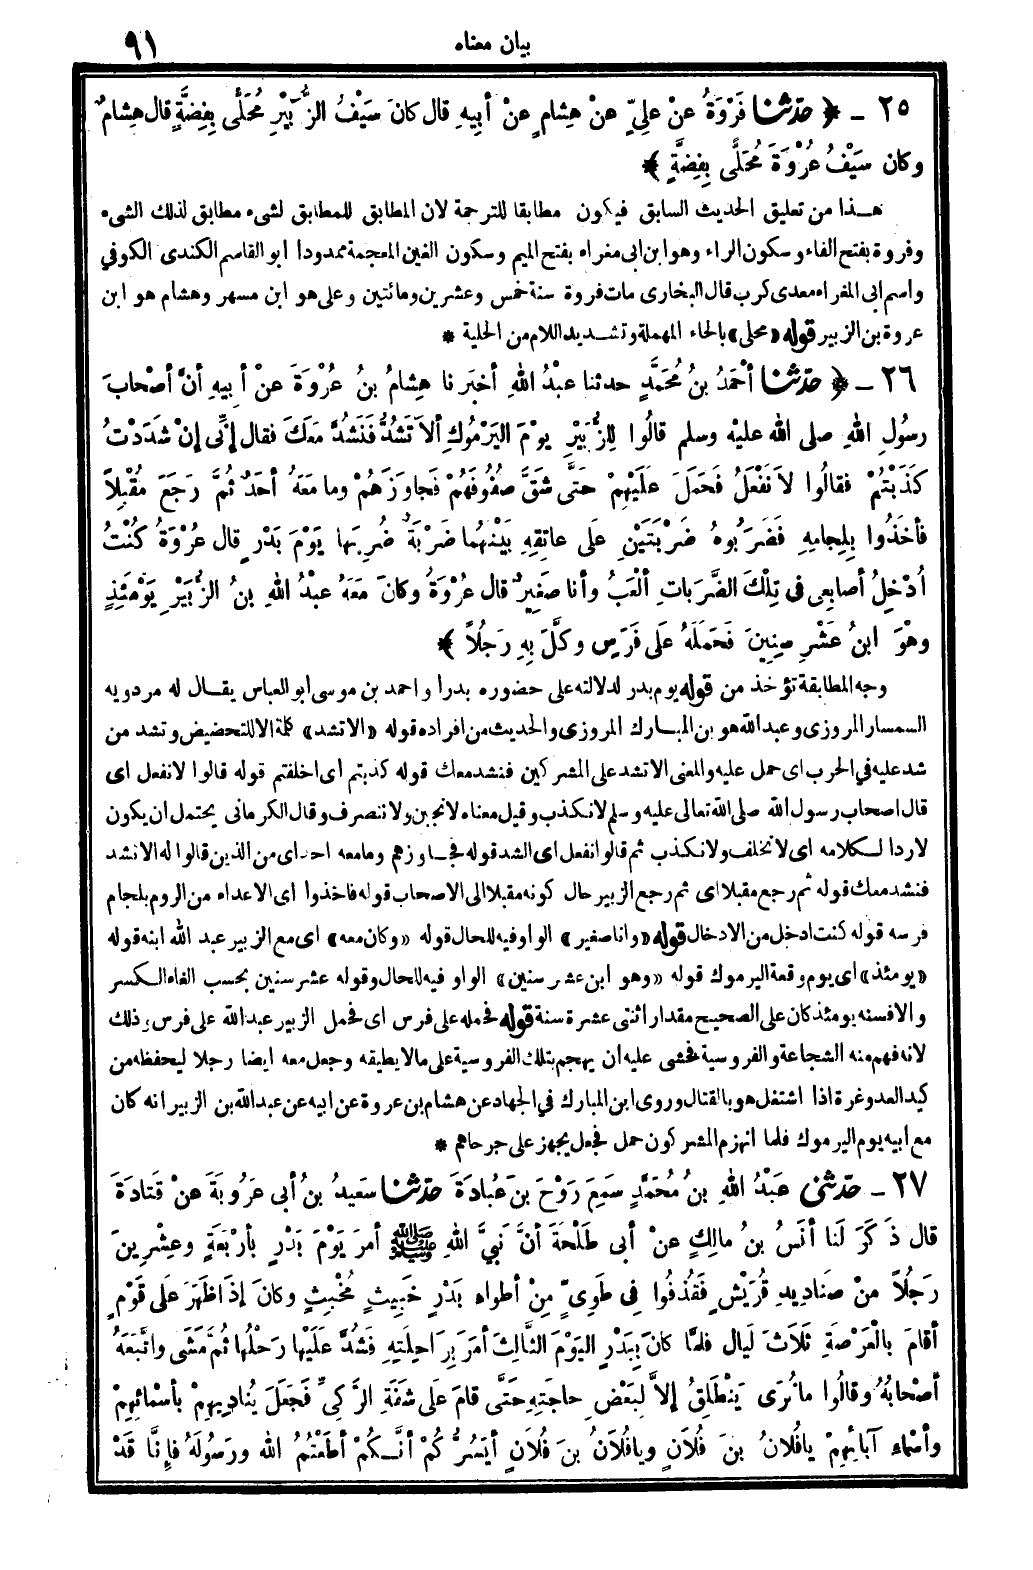 بيان معناه ٩١
٢٥ – ﴿ حدّثنا فَرْوَةُ عنْ علِيٍّ عنْ هِشامٍ عنْ أبيهِ قال كانَ سَيْفُ الزُّبَيْرِ مُحَلًّى بِفِضَّةٍ قال هِشامٌ
وكان سَيْفُ عُرْوَةَ مُحَلًّى بِفِضَّةٍ ﴾
هذا من تعليق الحديث السابق فيكون مطابقا للترجمة لان المطابق للمطابق لشىء مطابق لذلك الشىء
وفروة بفتح الفاء وسكون الراء وهو ابن ابى مغراء بفتح الميم وسكون الغين المعجمة ممدودا ابو القاسم الكندى الكوفي
واسم ابى المغراء معدى كرب قال البخارى مات فروة سنة خمس وعشرين ومائتين وعلى هو ابن مسهر وهشام هو ابن
عروة بن الزبير قوله «محلى» بالحاء المهملة وتشديد اللام من الحلية *
٢٦ – ﴿ حدّثنا أحْمَدُ بنُ مُحَمَّدٍ حدثنا عبْدُ اللهِ أخبرنا هِشامُ بنُ عُرْوَةَ عنْ أبِيهِ أنَّ أصْحابَ
رسُولِ اللهِ صلى الله عليْه وسلم قالُوا لِلزُّبَيْرِ يوْمَ اليَرْمُوكِ ألاَ تَشُدُّ فَنَشُدَّ مَعَكَ فقال إنِّى إنْ شَدَدْتُ
كَذَبْتُمْ فقالُوا لاَ نَفْعَلُ فَحَمَلَ علَيْهِمْ حَتَّى شَقَّ صُفُوفَهُمْ فَجاوَزَهُمْ وما معَهُ أحَدٌ ثُمَّ رَجَعَ مُقْبِلاً
فأخَذُوا بِلِجامِهِ فَضَرَبُوهُ ضَرْبَتَيْنِ علَى عاتِقِهِ بَيْنَهُما ضَرْبَةٌ ضُرِبَها يَوْمَ بَدْرٍ قال عُرْوَةُ كُنْتُ
أُدْخِلُ أصابِعِى فى تِلْكَ الضَّرَباتِ ألْعَبُ وأنا صَغِيرٌ قال عُرْوَةُ وكانَ مَعَهُ عبْدُ اللهِ بنُ الزُّبَيْرِ يَوْمَئِذٍ
وهْوَ ابنُ عَشْرِ سِنِينَ فَحَمَلَهُ علَى فَرَسٍ وكَّلَ بِهِ رَجُلاً ﴾
وجه المطابقة تؤخذ من قوله يوم بدر لدلالته على حضوره بدرا واحمد بن موسى ابو العباس يقال له مردويه
السمسار المروزى وعبد الله هو بن المبارك المروزى والحديث من افراده قوله «الا تشد» كلمة الا للتحضيض وتشد من
شد عليه في الحرب اى حمل عليه والمعنى الا تشد على المشركين فنشد معك قوله كذبتم اى اخلفتم قوله قالوا لا نفعل اى
قال اصحاب رسول الله صلى الله تعالى عليه وسلم لا نكذب وقيل معناه لا نجبن ولا ننصرف وقال الكرمانى يحتمل ان يكون
لا ردا لكلامه اى لا نخلف ولا نكذب ثم قالوا نفعل اى الشد قوله فجاوزهم وما معه احد اى من الذين قالوا له الا تشد
فنشد معك قوله ثم رجع مقبلا اى ثم رجع الزبير حال كونه مقبلا الى الاصحاب قوله فاخذوا اى الاعداء من الروم بلجام
فرسه قوله كنت ادخل من الادخال قوله «وانا صغير» الواو فيه للحال قوله «وكان معه» اى مع الزبير عبد الله ابنه قوله
«يومئذ» اى يوم وقعة اليرموك قوله «وهو ابن عشر سنين» الواو فيه للحال وقوله عشر سنين بحسب الغاء الكسر
والا فسنه يومئذ كان على الصحيح مقدار اثنتى عشرة سنة قوله فحمله على فرس اى فحمل الزبير عبد الله على فرس وذلك
لانه فهم منه الشجاعة والفروسية فخشى عليه ان يهجم بتلك الفروسية على ما لا يطيقه وجعل معه ايضا رجلا ليحفظه من
كيد العدو غرة اذا اشتغل هو بالقتال وروى ابن المبارك في الجهاد عن هشام بن عروة عن ابيه عن عبد الله بن الزبير انه كان
مع ابيه يوم اليرموك فلما انهزم المشركون حمل فجعل يجهز على جرحاهم *
٢٧ – حدّثنى عَبْدُ اللهِ بنُ مُحَمَّدٍ سَمِعَ رَوْحَ بنَ عُبادَةَ حدّثنا سَعِيدُ بنُ أبى عَرُوبَةَ عنْ قَتادَةَ
قال ذَكَرَ لَنا أنَسُ بنُ مالِكٍ عنْ أبى طَلْحَةَ أنَّ نَبِيَّ اللهِ ﷺ أمرَ يَوْمَ بَدْرٍ بأرْبَعَةٍ وعِشْرِينَ
رَجُلاً مِنْ صَنادِيدِ قُرَيْشٍ فَقُذِفُوا فِى طَوِىٍّ مِنْ أطْواءِ بَدْرٍ خَبِيثٍ مُخْبِثٍ وكانَ إذَا ظَهَرَ علَى قَوْمٍ
أقامَ بالْعَرْصَةِ ثَلاَثَ لَيالٍ فلمَّا كانَ بِبَدْرٍ اليَوْمَ الثَّالِثَ أمَرَ بِرَاحِلَتِهِ فَشُدَّ علَيْها رَحْلُها ثُمَّ مَشَى واتَّبَعَهُ
أصْحابُهُ وقالُوا ما نُرَى يَنْطَلِقُ إلاَّ لِبَعْضِ حاجَتِهِ حَتَّى قامَ علَى شَفَةِ الرَّكِىِّ فَجَعَلَ يُنادِيهِمْ بأسْمائِهِمْ
وأسْماءِ آبائِهِمْ يافُلاَنُ بنَ فُلاَنٍ ويافُلاَنُ بنَ فُلاَنٍ أيَسُرُّكُمْ أنَّكُمْ أطَعْتُمُ الله ورسُولَهُ فإنَّا قَدْ